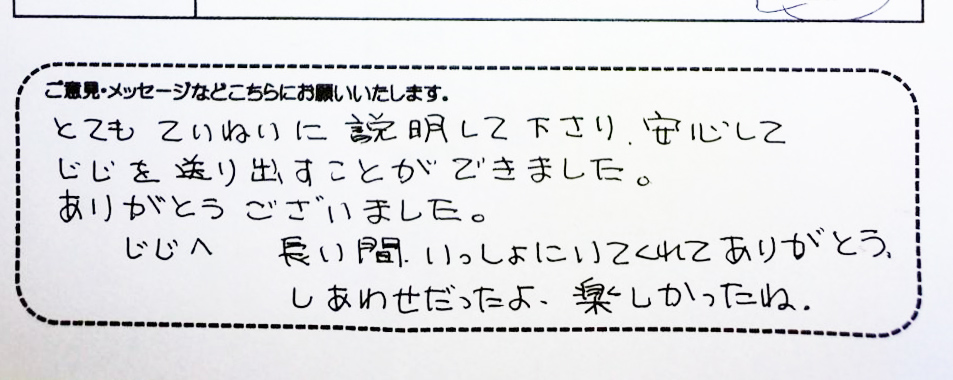 ご意見・メッセージなどこちらにお願いいたします。
とても ていねいに 説明して下さり、安心して
じじを送り出すことができました。
ありがとう ございました。
じじへ 長い間、いっしょにいてくれてありがとう、
しあわせだったよ、楽くしかったね.